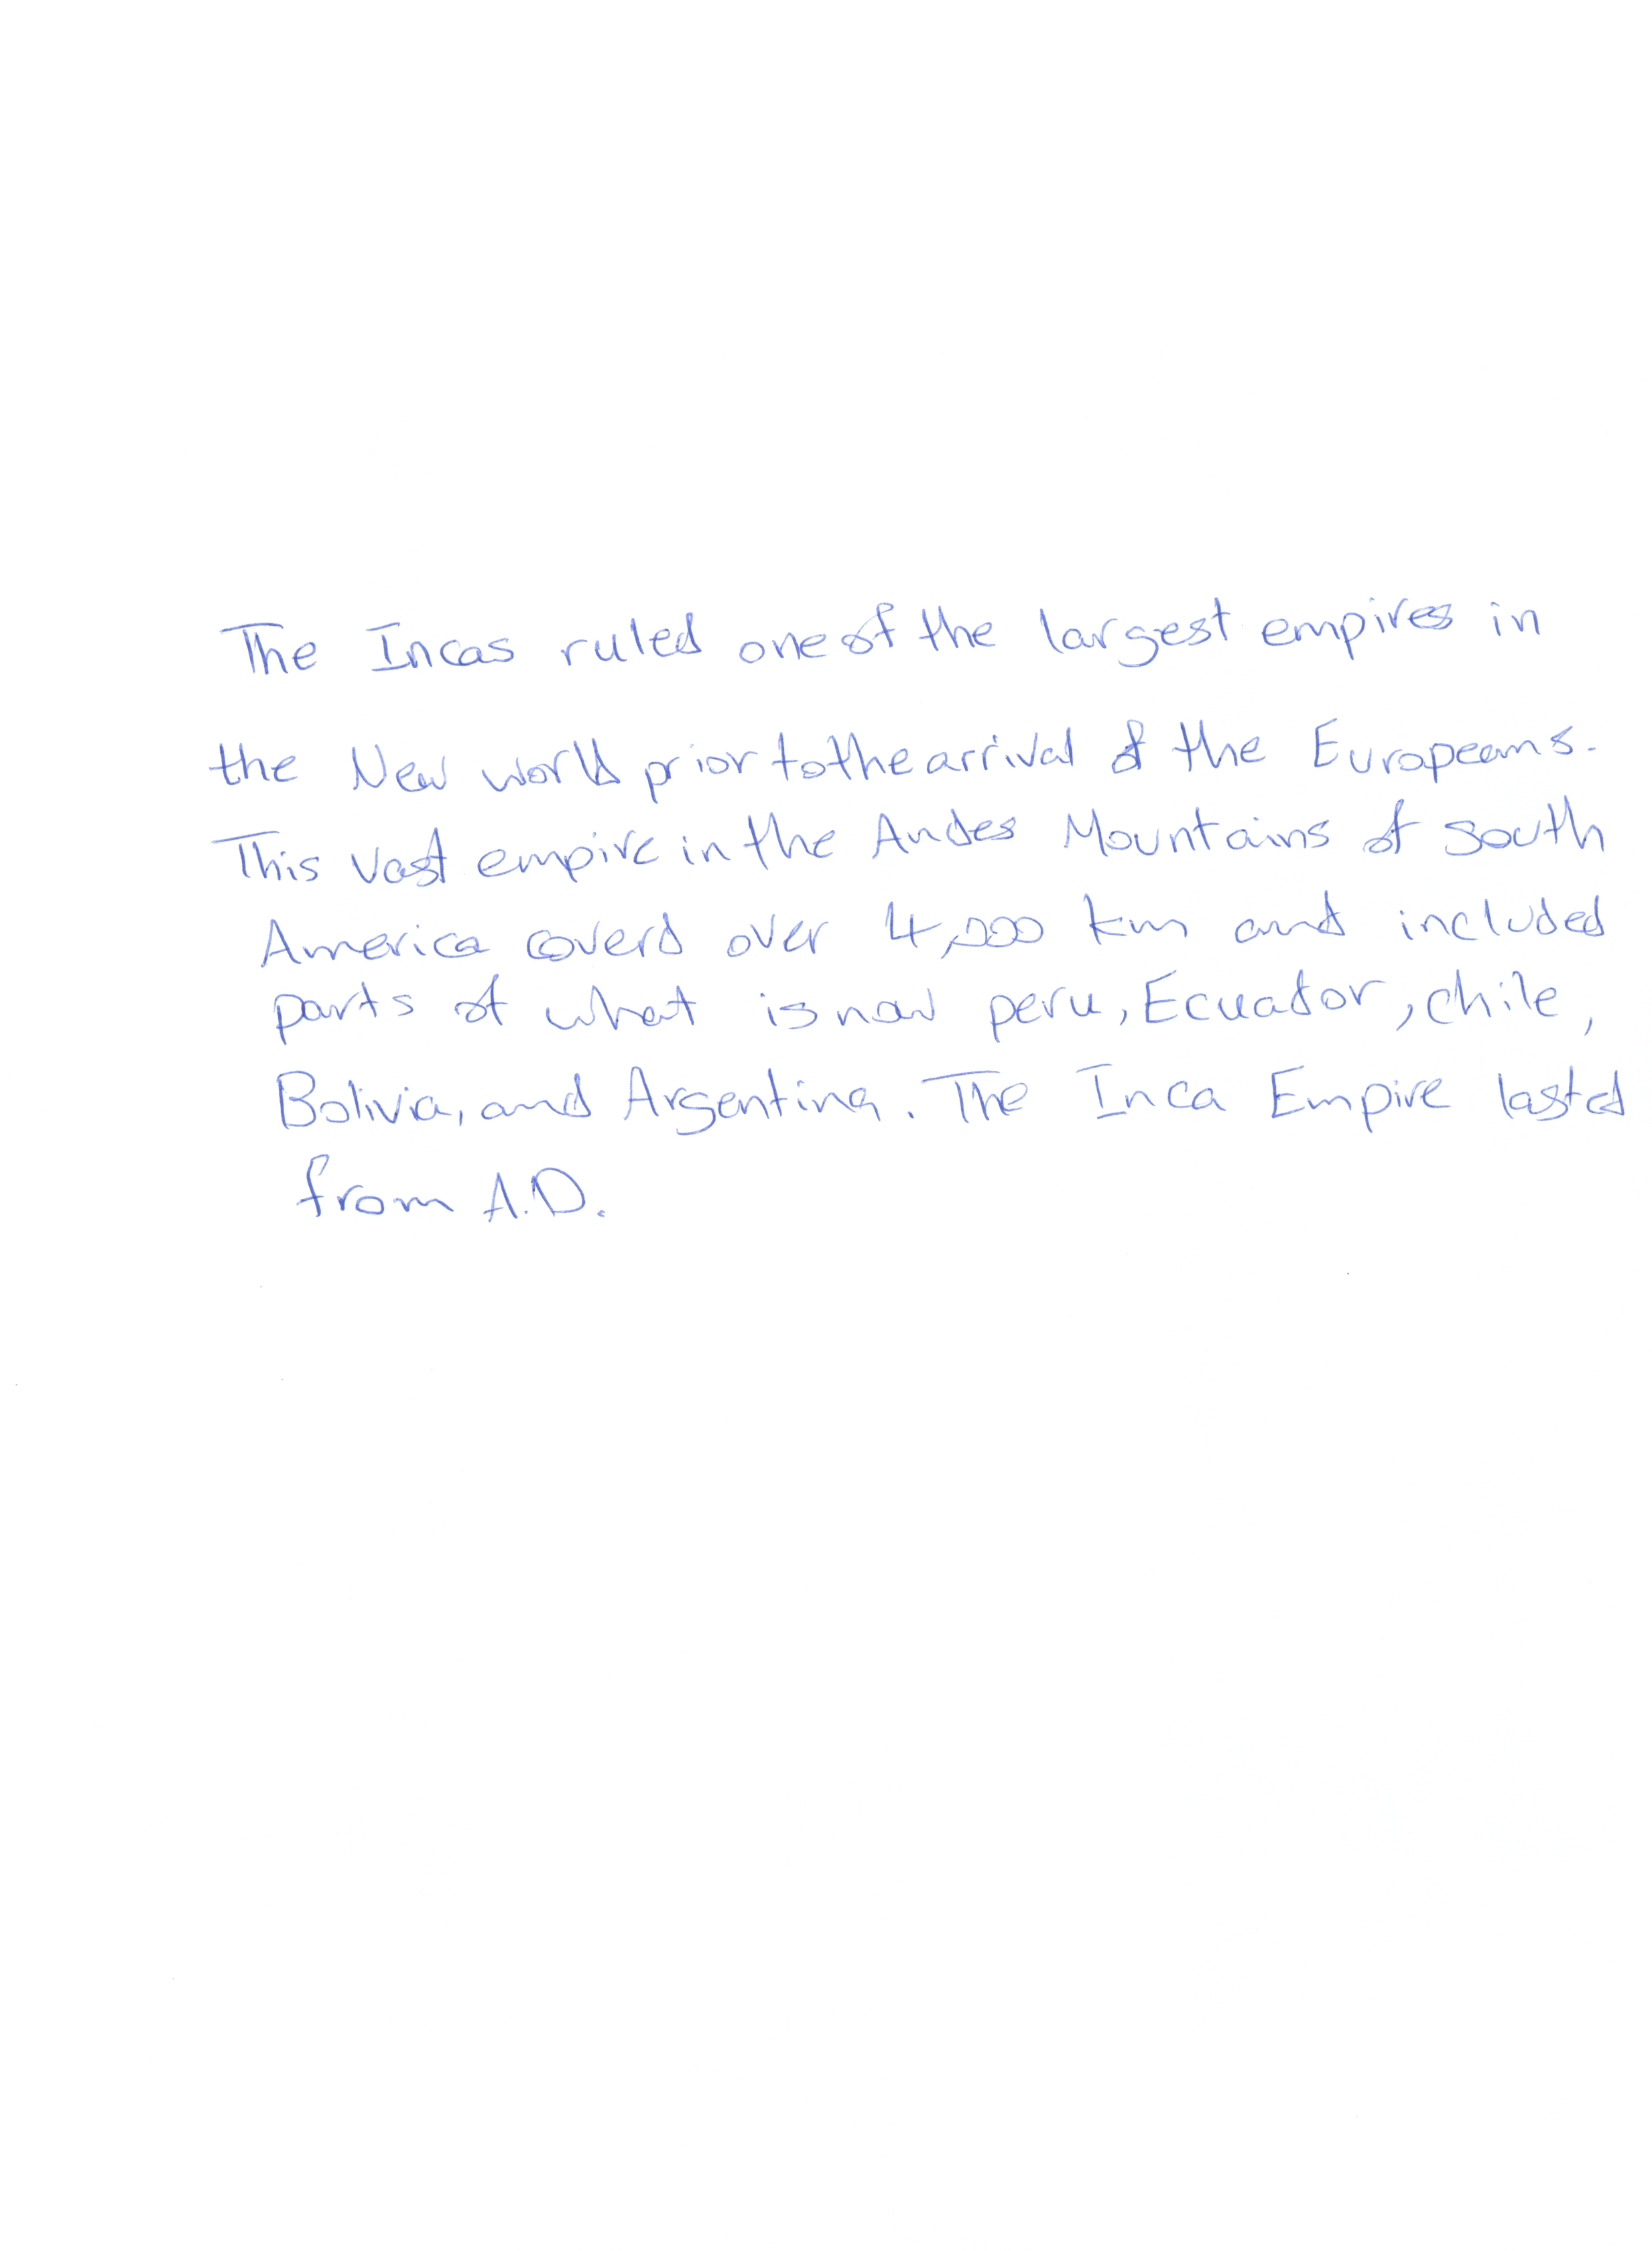 The Incas ruled one of the largest empires in
the New world prior to the arrival of the Europeans.
This vast empire in the Andes Mountains of South
America coverd over 4,000 km and included
parts of what is now peru, Ecuador, chile,
Bolivia, and Argentina. The Inca Empire lasted
from A.D.